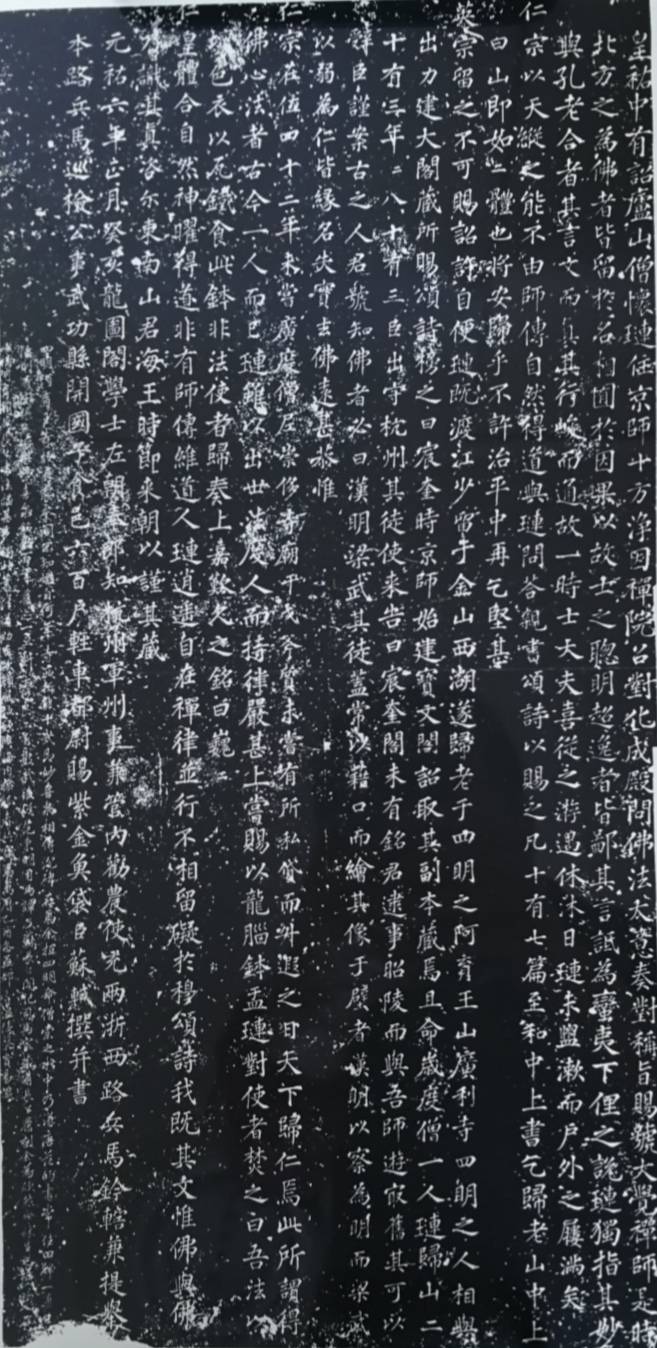 皇祐中有詔廬山僧懷璉住京師十方淨因禪院召對化成殿問佛法大意奏對稱旨賜號大覺禪師是時
北方之為佛者皆留於名相囿於因果以故士之聰明超逸者皆鄙其言詆為蠻夷下俚之說璉獨指其妙
與孔老合者其言文而真其行峻而通故一時士大夫喜從之遊遇休沐日璉未盥漱而戶外之屨滿矣
仁宗以天縱之能不由師傳自然得道與璉問答親書頌詩以賜之凡十有七篇至和中上書乞歸老山中上
曰山即如如體也將安歸乎不許治平中再乞堅甚
英宗留之不可賜詔許自便璉既渡江少留于金山西湖遂歸老于四明之阿育王山廣利寺四明之人相與
出力建大閣藏所賜頌詩榜之曰宸奎時京師始建寶文閣詔取其副本藏焉且命歲度僧一人璉歸山二
十有三年年八十有三臣出守杭州其徒使來告曰宸奎閣未有銘君逮事昭陵而與吾師遊最舊其可以
辭臣謹案古之人君號知佛者必曰漢明梁武其徒蓋常以藉口而繪其像于壁者漢明以察為明而梁武
以弱為仁皆緣名失實去佛遠甚恭惟
仁宗在位四十二年未嘗廣度僧尼崇侈寺廟干戈斧質未嘗有所私貸而升遐之日天下歸仁焉此所謂得
佛心法者古今一人而已璉雖以出世法度人而持律嚴甚上嘗賜以龍腦鉢盂璉對使者焚之曰吾法以
壞色衣以瓦鐵食此鉢非法使者歸奏上嘉歎久之銘曰巍巍
仁皇體合自然神曜得道非有師傳維道人璉逍遙自在禪律並行不相留礙於穆頌詩我既其文惟佛與佛
乃識其真咨尒東南山君海王時節來朝以謹其藏
元祐六年正月癸亥龍圖閣學士左朝奉郎知杭州軍州事兼管內勸農使充兩浙西路兵馬鈐轄兼提舉
本路兵馬巡檢公事武功縣開國子食邑六百戶輕車都尉賜紫金魚袋臣蘇軾撰并書